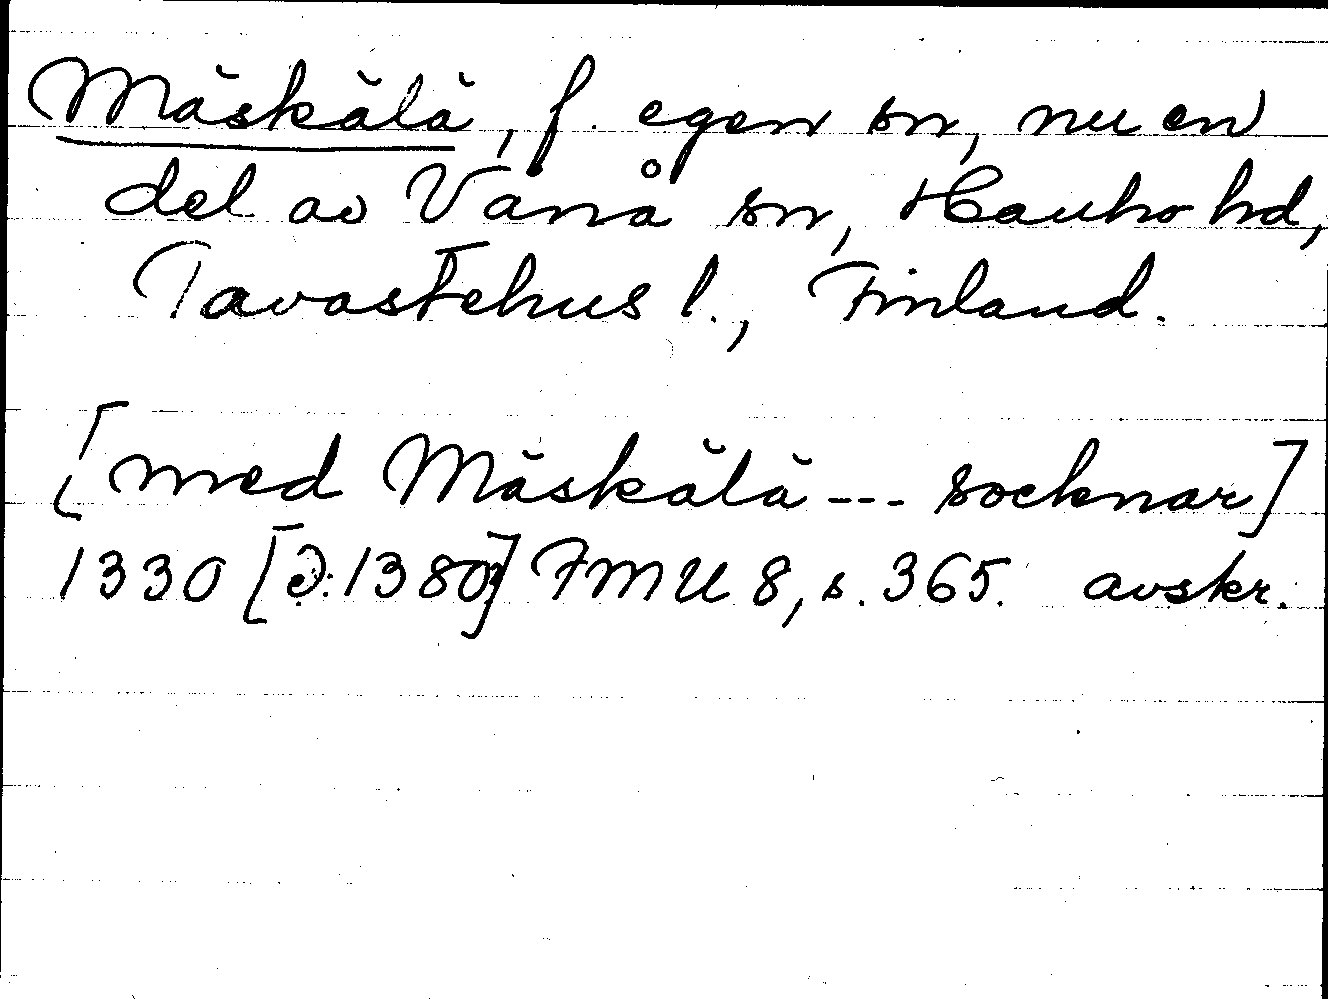 Mäskälä, f. egen sn, nu en
del av Vånå sn, Hauho hd,
Tavastehus l., Finland.
[med Mäskälä --- socknar]
1330 [ɔ: 1380] FMU 8, s. 365. avskr.